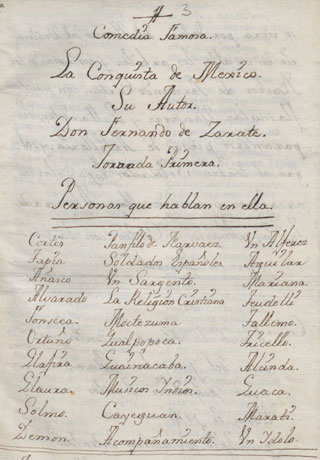 3
Comedia Famosa.
La Conquista de Mexico.
Su Autor.
Don Fernando de Zarate.
Jornada Primera.
Personas que hablan en ella.
Cortes Panfilo de Narvaez Vn Alferez
Tapia Soldados Españoles Aguilar
Añasco Vn Sargento. Mariana
Alvarado La Religion Cristiana Teudelli
Fonseca. Moctezuma Tallemo.
Ortuño Qualpopoca. Tucello.
Glafira Guainacaba. Alunda.
Glaura. Musicos Indios. Guaca.
Solmo. Cayeguan. Marati.
Demon. Acompañamiento. Vn Idolo.